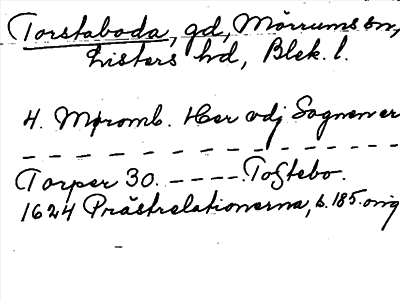 Torstaboda, gd, Mörrums sn,
Listers hd, Blek. l.
4. Mpromb. Her udj Sognen er
— — — — — — — — — — — — — —
Torper 30. — — — — Tostebo.
1624 Prästrelationerna, s. 185. orig